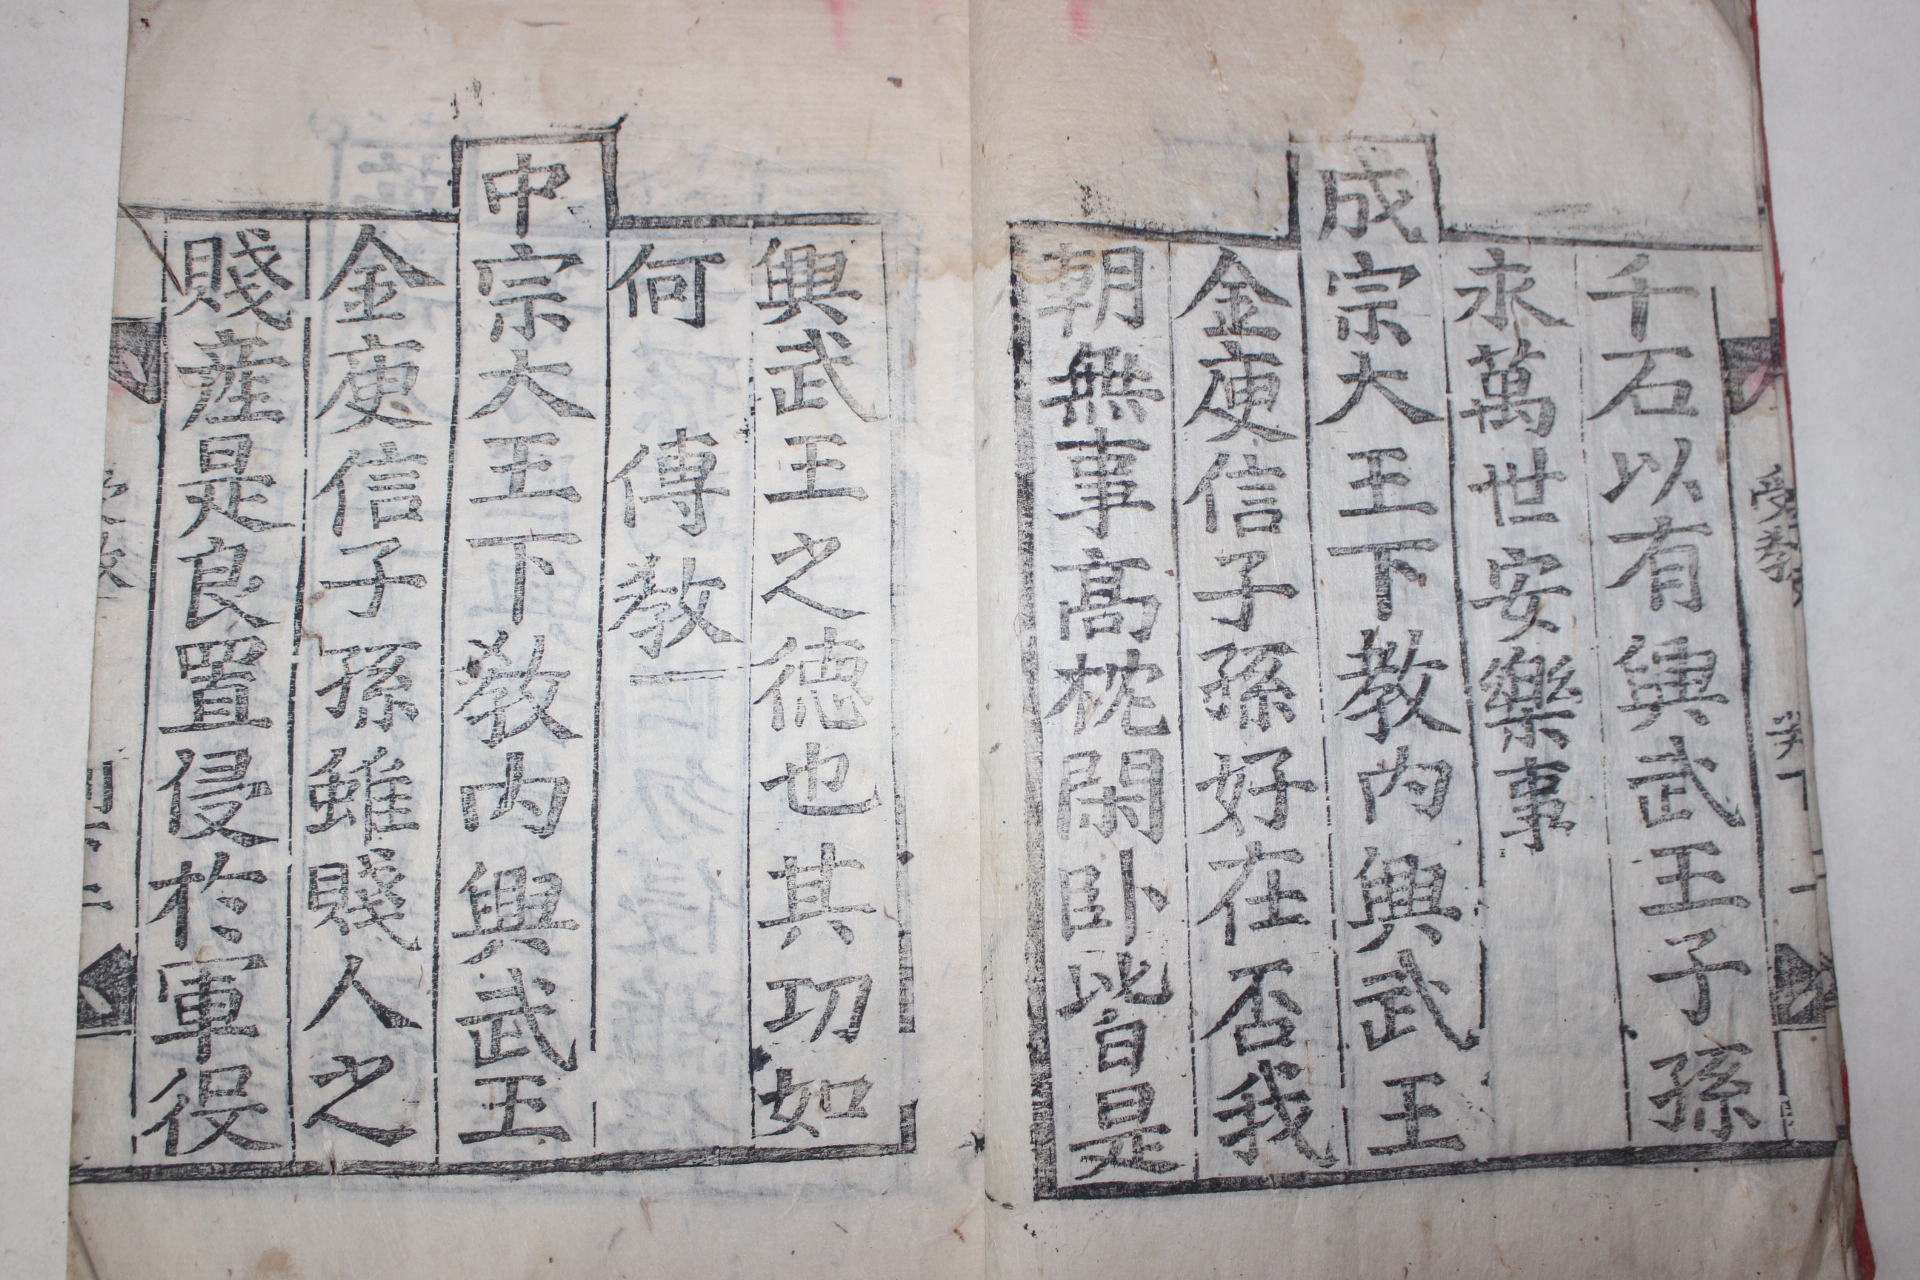 千石以有興武王子孫
永萬世安樂事
成宗大王下教內興武王
金庾信子孫好在否我
朝無事高枕閑卧皆是
興武王之德也其功如
何　傳教
中宗大王下教內興武王
金庾信子孫雖賤人之
賤産是良置侵於軍役
受教